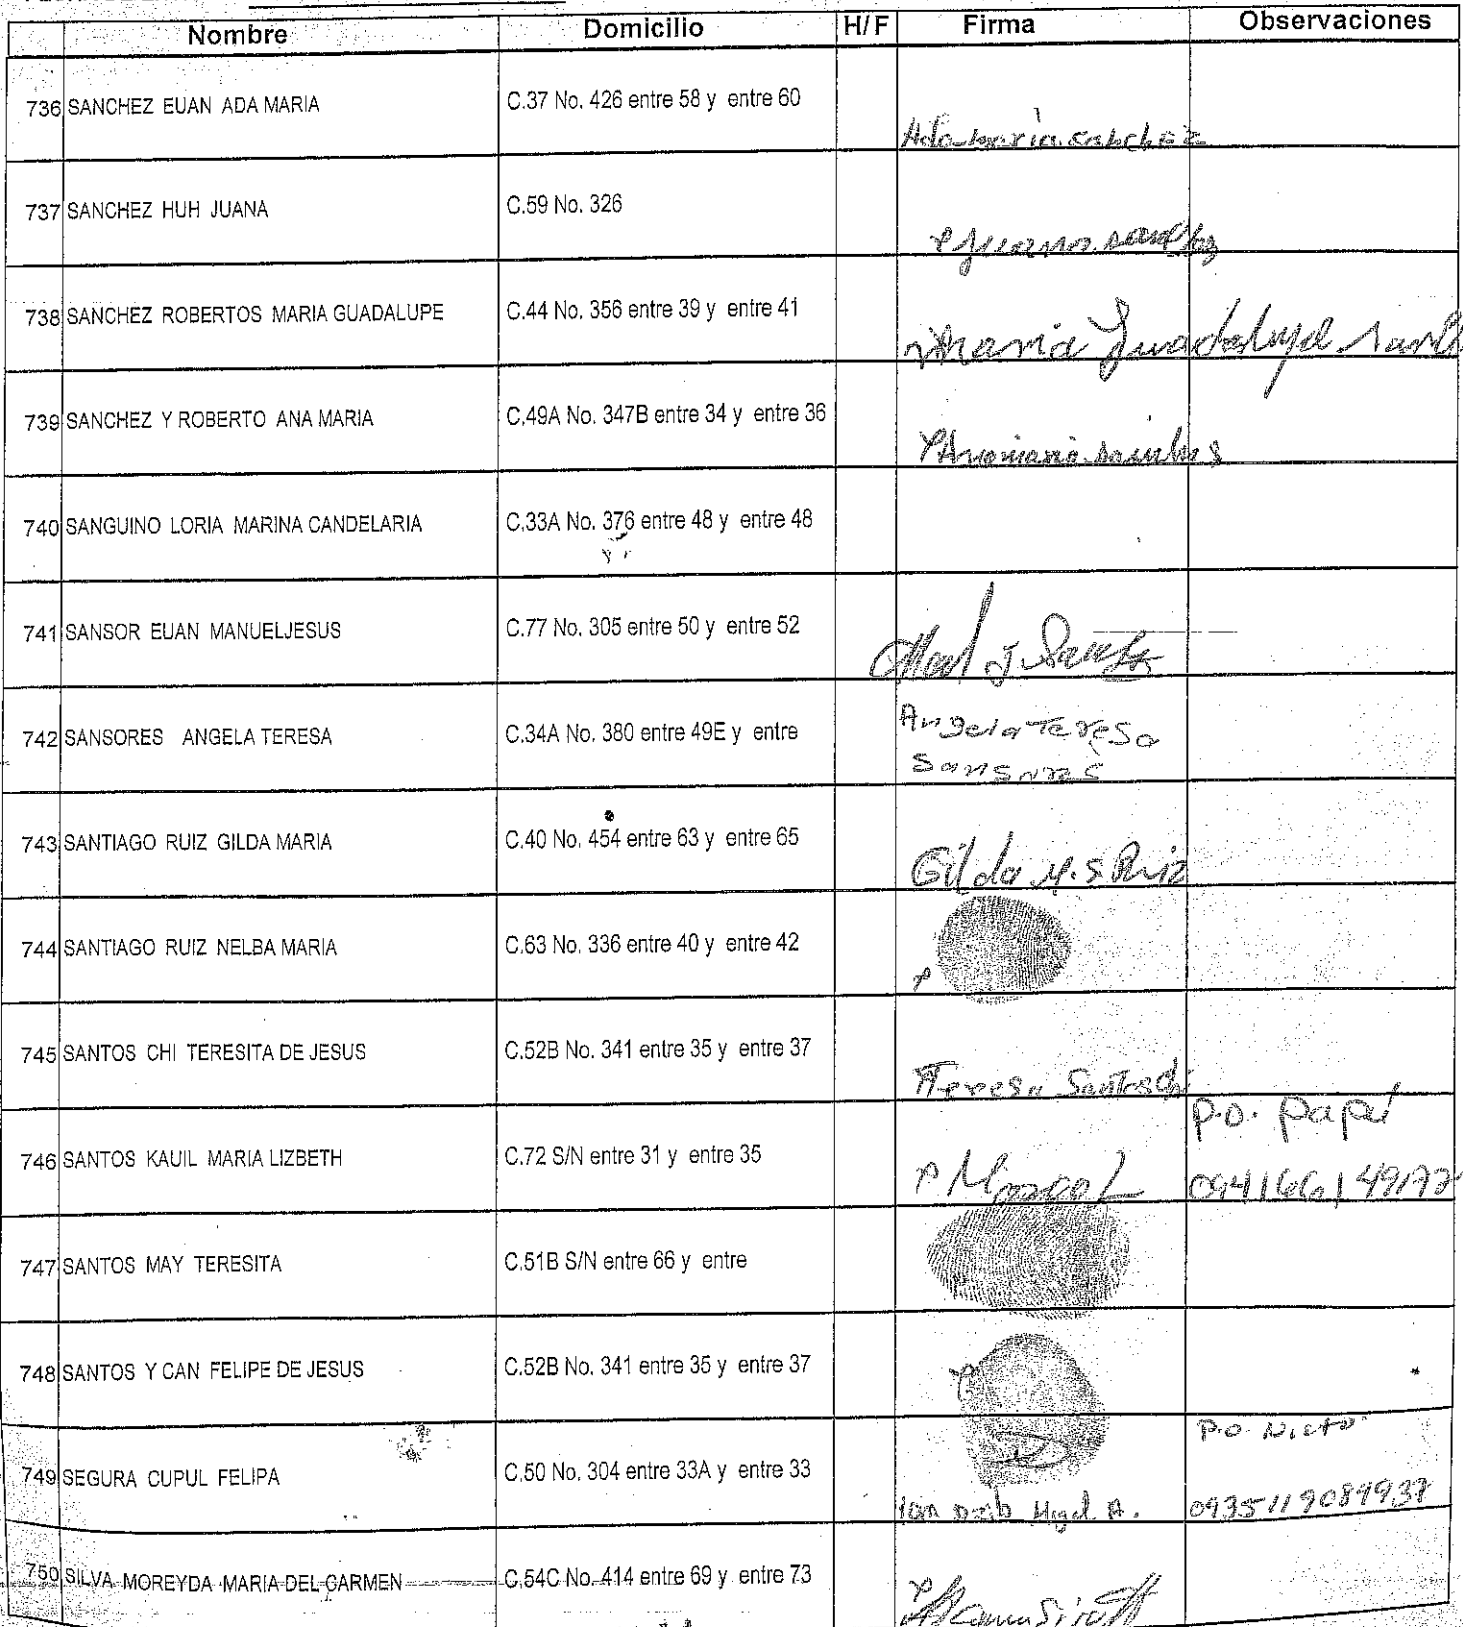 Nombre Domicilio H/F Firma Observaciones
736 SANCHEZ EUAN ADA MARIA C.37 No. 426 entre 58 y entre 60
Ada maria sanchez
737 SANCHEZ HUH JUANA C.59 No. 326
Juana
738 SANCHEZ ROBERTOS MARIA GUADALUPE C.44 No. 356 entre 39 y entre 41
Maria Guadalupe
739 SANCHEZ Y ROBERTO ANA MARIA C.49A No. 347B entre 34 y entre 36
740 SANGUINO LORIA MARINA CANDELARIA C.33A No. 376 entre 48 y entre 48
741 SANSOR EUAN MANUELJESUS C.77 No. 305 entre 50 y entre 52
742 SANSORES ANGELA TERESA C.34A No. 380 entre 49E y entre
Angela Teresa
Sansores
743 SANTIAGO RUIZ GILDA MARIA C.40 No. 454 entre 63 y entre 65
Gilda M. S. Ruiz
744 SANTIAGO RUIZ NELBA MARIA C.63 No. 336 entre 40 y entre 42
745 SANTOS CHI TERESITA DE JESUS C.52B No. 341 entre 35 y entre 37
Teresa Santos Chi
P.O. papá
746 SANTOS KAUIL MARIA LIZBETH C.72 S/N entre 31 y entre 35
747 SANTOS MAY TERESITA C.51B S/N entre 66 y entre
748 SANTOS Y CAN FELIPE DE JESUS C.52B No. 341 entre 35 y entre 37
P.O Nieto
749 SEGURA CUPUL FELIPA C.50 No. 304 entre 33A y entre 33
Dzib Migel A. 0935119089937
750 SILVA MOREYDA MARIA DEL CARMEN C.54C No. 414 entre 69 y entre 73